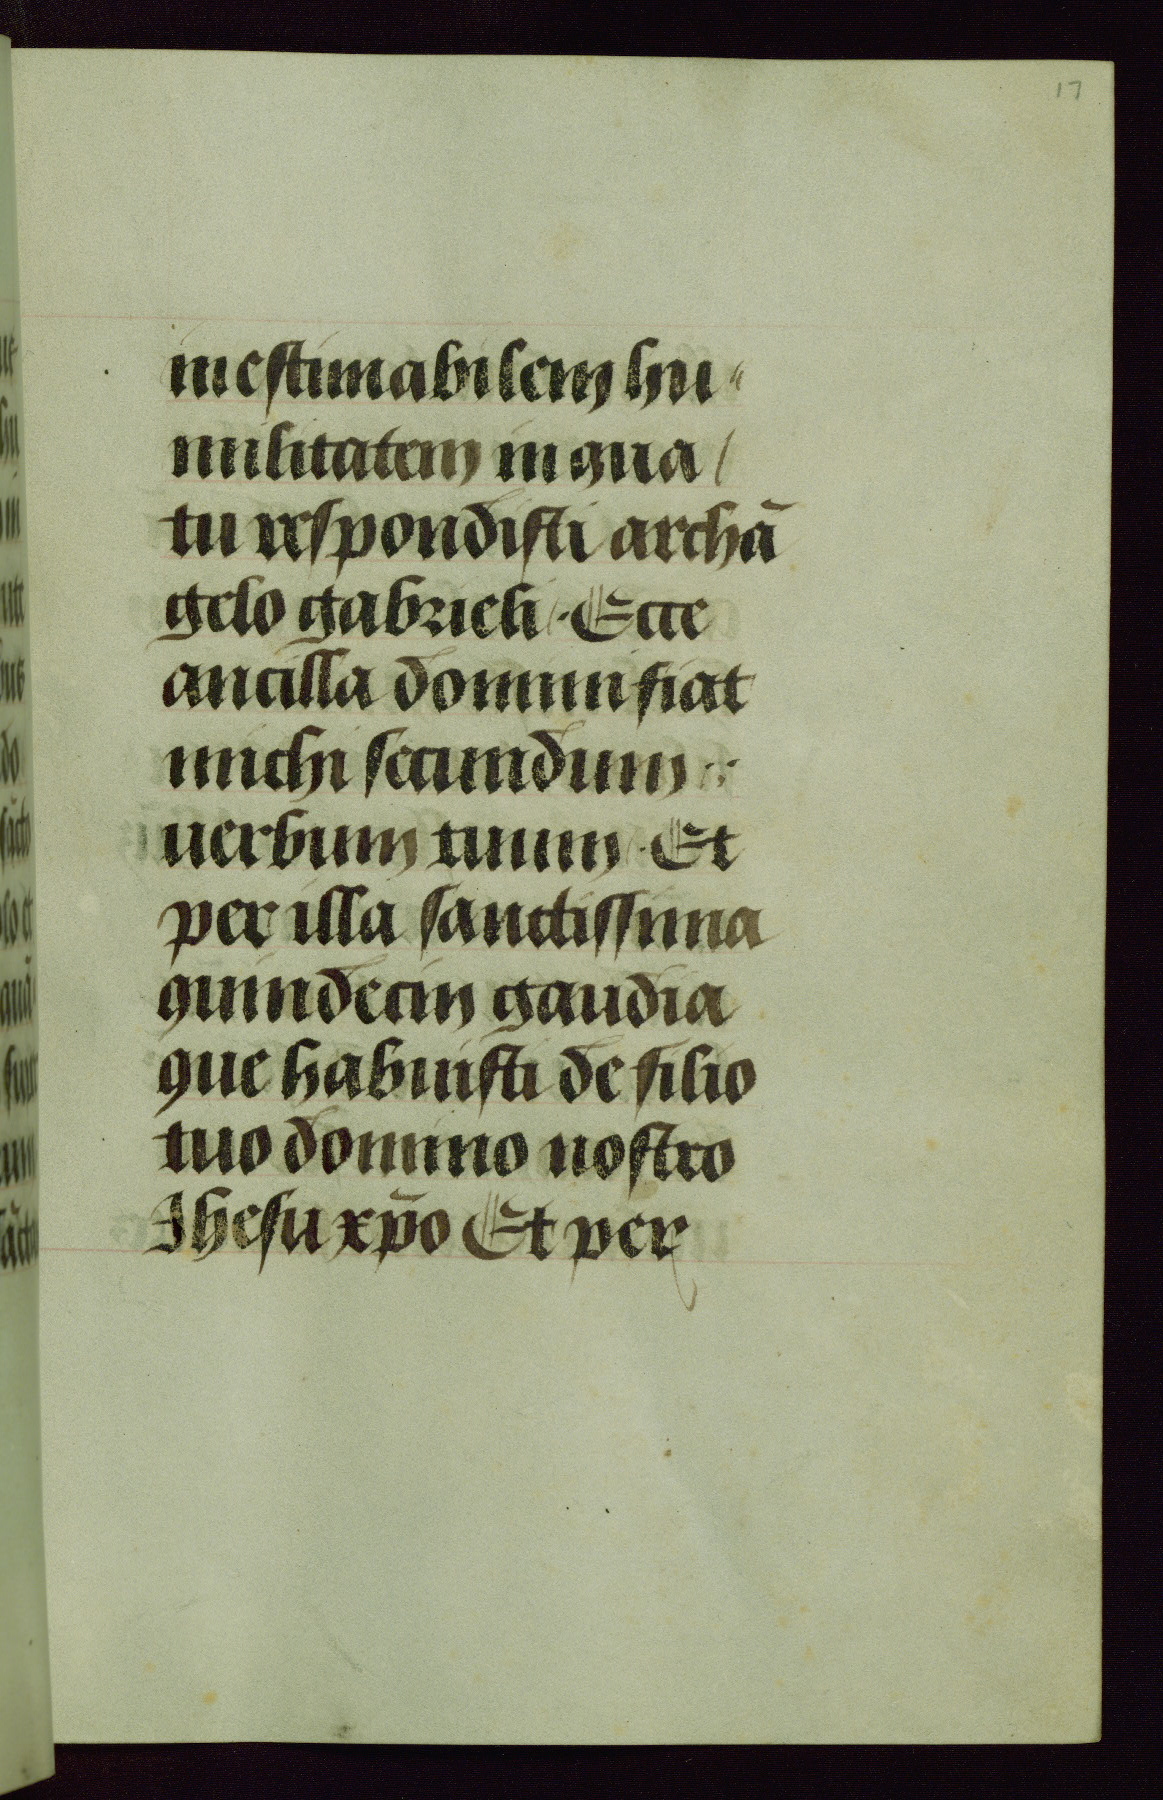 17
inestimabilem hu〃
militatem in qua /
tu respondisti archā
gelo gabrieli · Ecce
ancilla domini fiat
michi secundum
uerbum tuum · Et
per illa sanctissima
quindecim gaudia
que habuisti de filio
tuo domino nostro
Ihesu xp̄o Et per